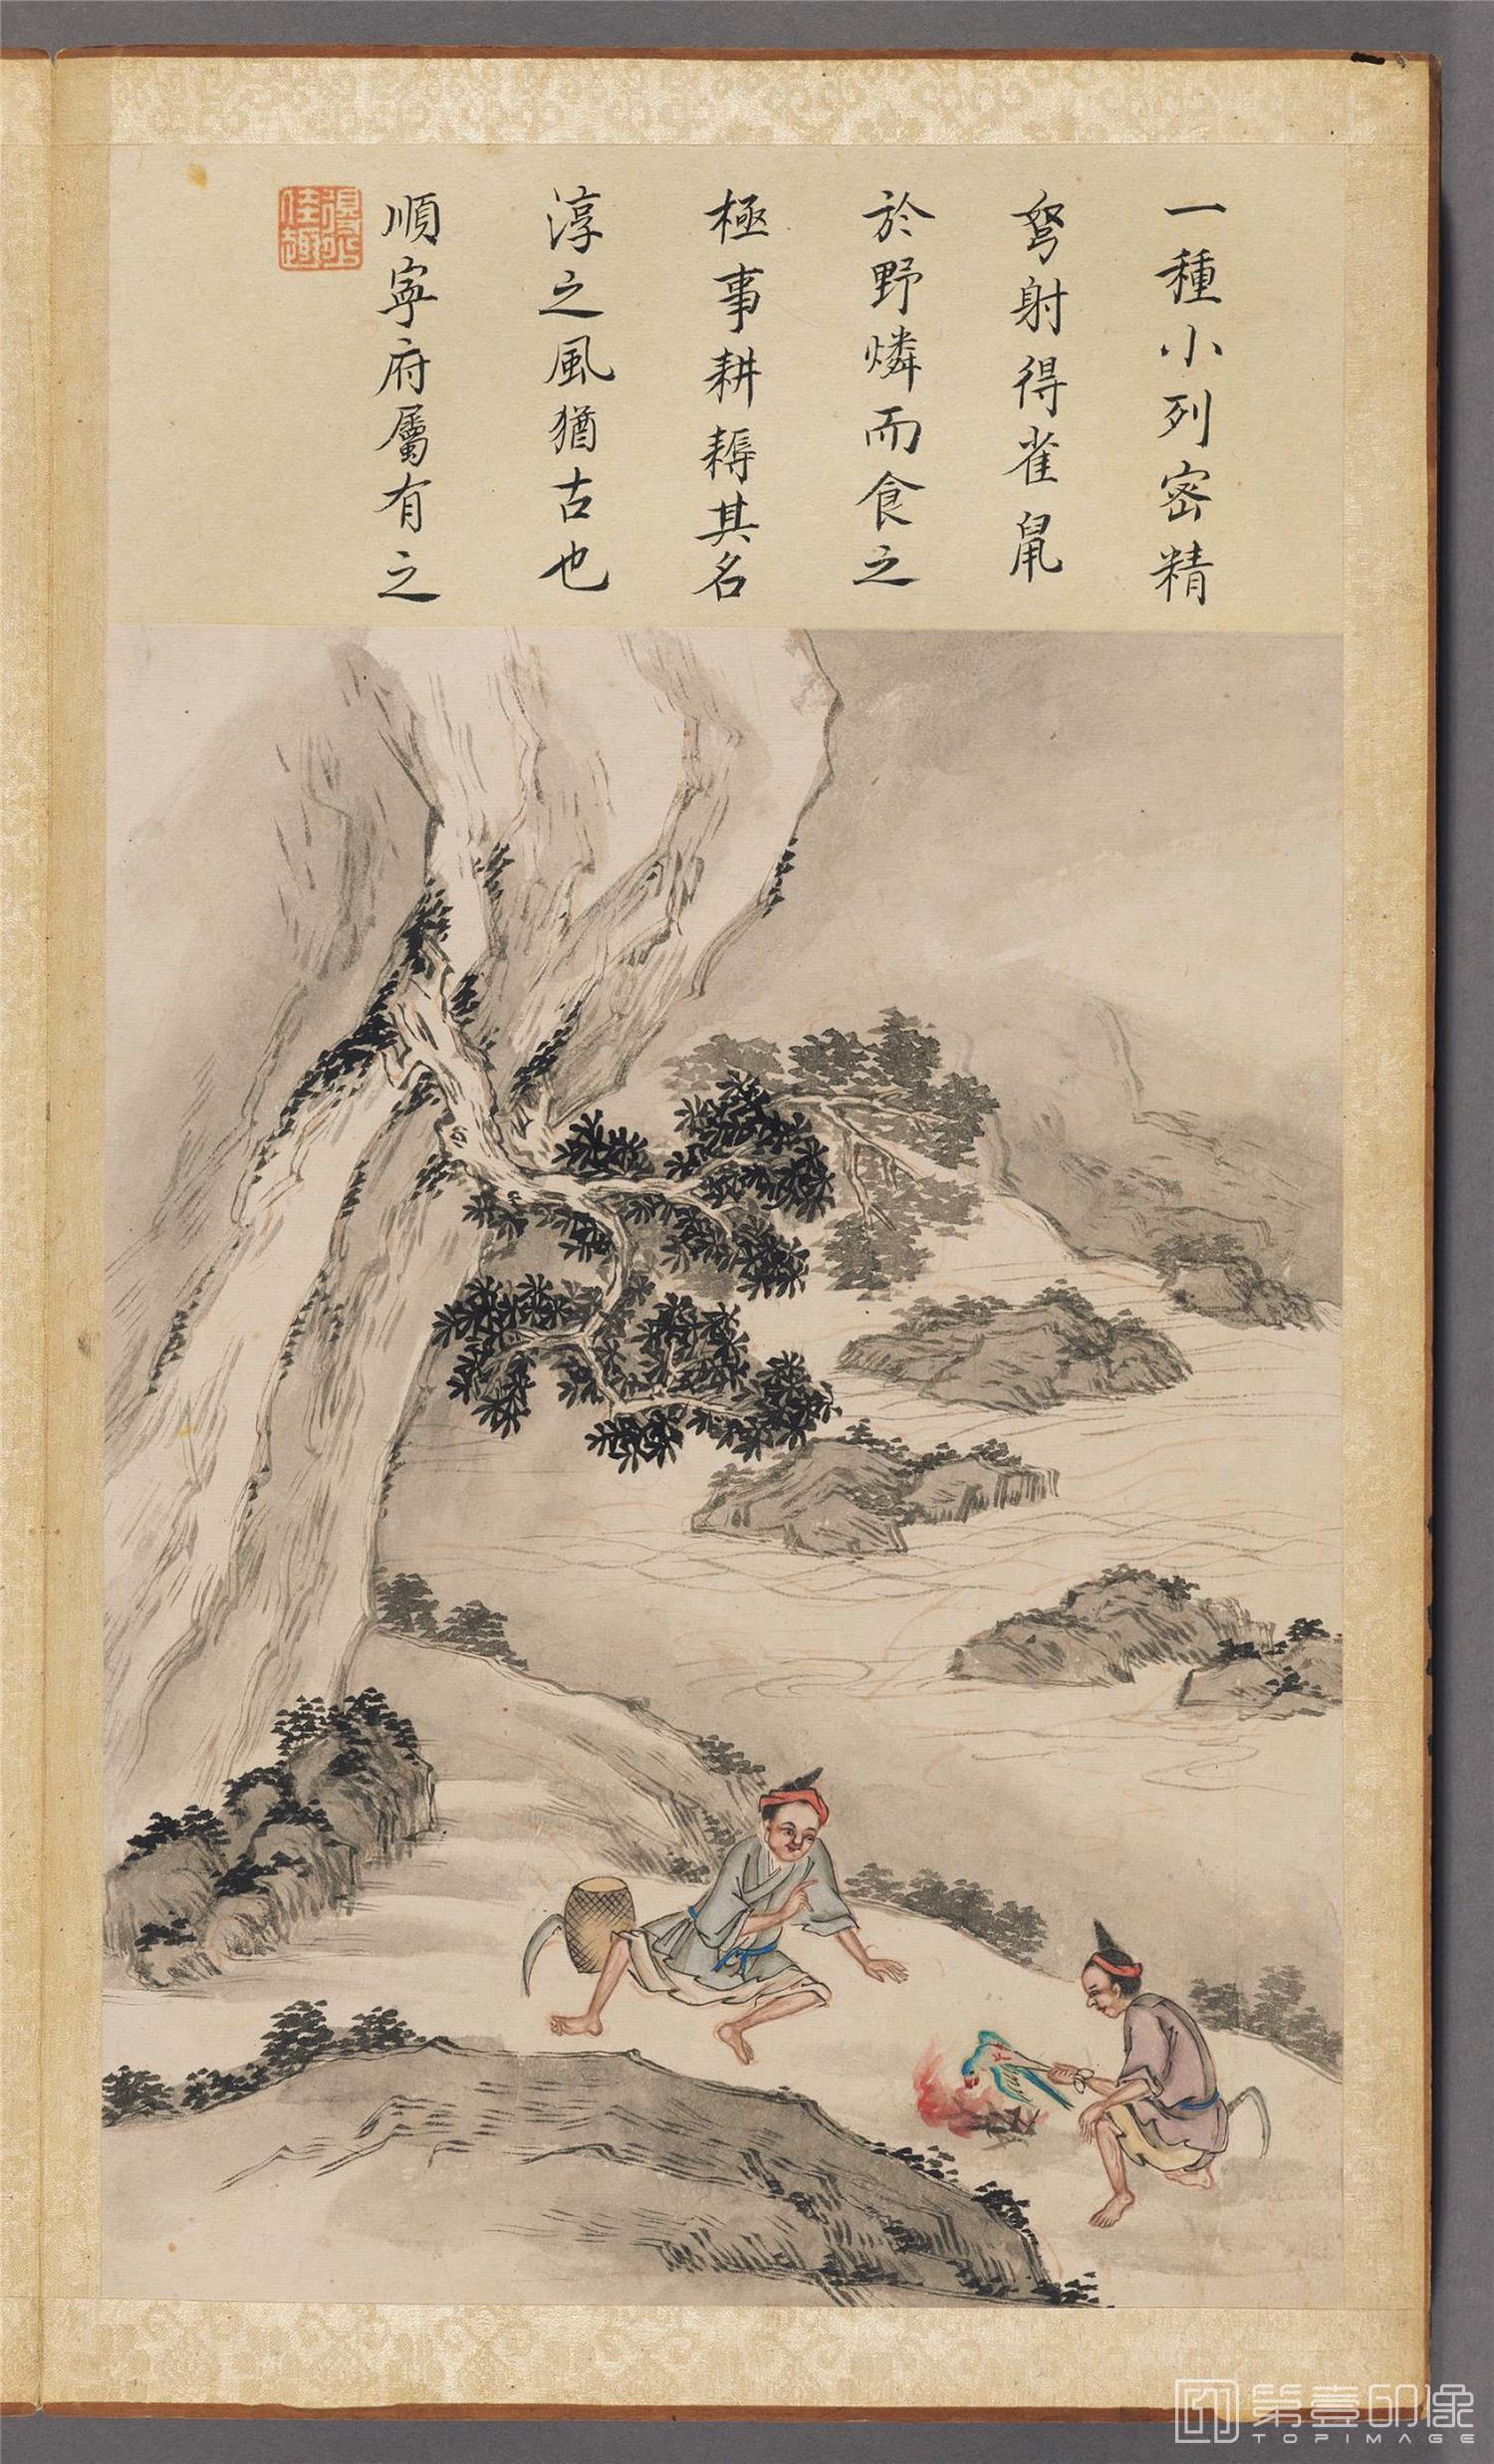 一種小列密精
弩射得雀鼠
於野燐而食之
極事耕耨其名
淳之風猶古也
順寧府屬有之
得少佳趣
第壹印像
TOPIMAGE